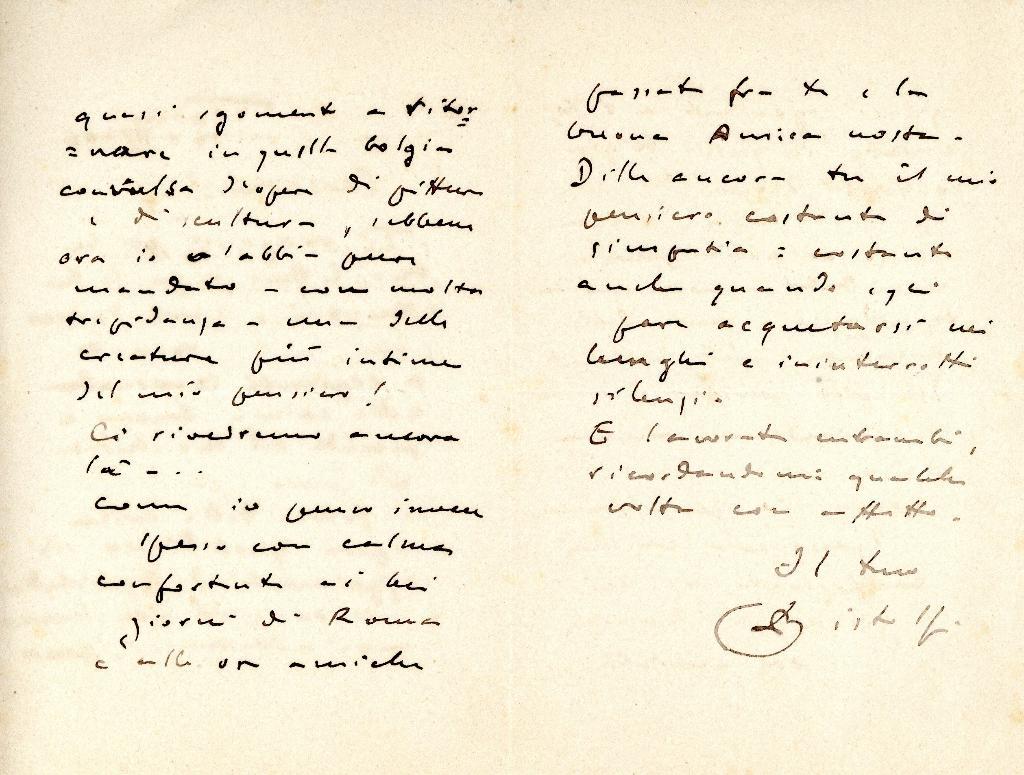 quasi sgomento a ritor=
=nare in quella bolgia
convulsa d'opere di pittura
e di scultura, sebbene
ora io v'abbia pure
mandato - con molta
trepidanza - una delle
creature più intime
del mio pensiero!
Ci rivedremo ancora
là - ...
Come io penso invece
spesso con calma
confortante ai bei
giorni di Roma
e alle ore amiche
passate fra te e la
buona Amica nostra.
Dille ancora tu il mio
pensiero costante di
simpatia: costante
anche quando egli
pare acquetarsi nei
lunghi e ininterrotti
silenzi.
E lavorate entrambi,
ricordandomi qualche
volta con affetto.
Il tuo
Bistolfi.